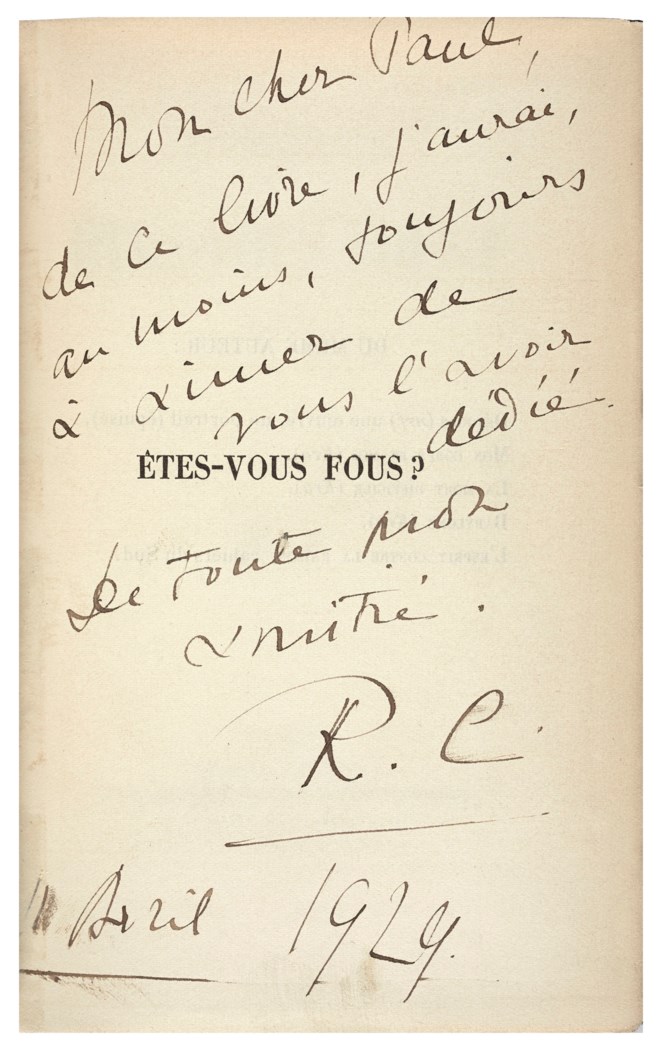 Mon cher Paul,
de ce livre, j'aurai,
au moins, toujours
à aimer de
vous l'avoir
dédié.
ÊTES-VOUS FOUS ?
De toute mon
amitié.
R. C.
Avril 1929.